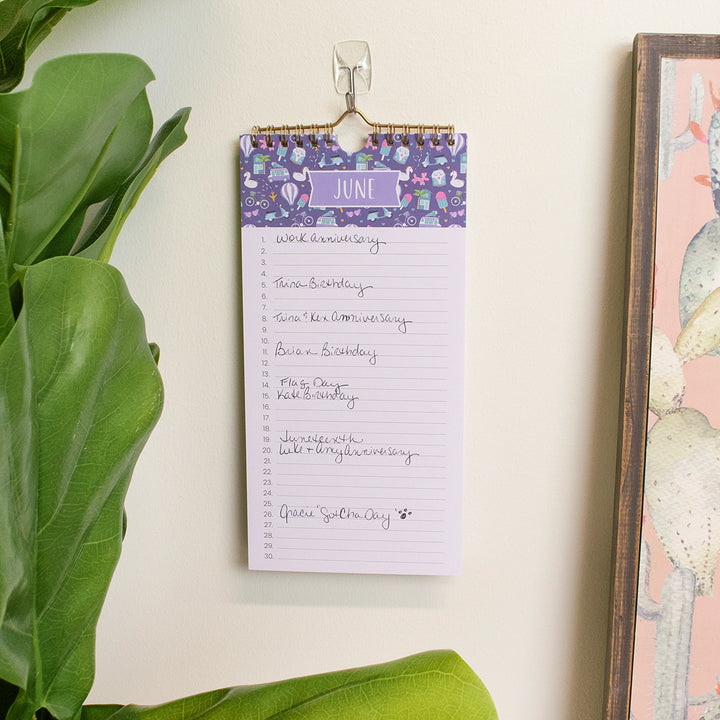 JUNE
1. Work Anniversary
2.
3.
4.
5. Trina Birthday
6.
7.
8. Trina & Kex Anniversary
9.
10.
11. Brian Birthday
12.
13.
14. Flag Day
15. Kate Birthday
16.
17.
18.
19. Juneteenth
20. Luke + Amy Anniversary
21.
22.
23.
24.
25.
26. Gracie "GotCha Day"
27.
28.
29.
30.